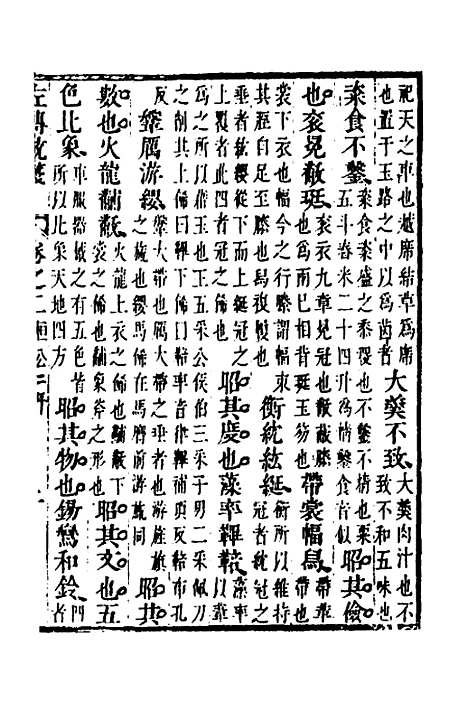 祀天之車也越席結草為席也置于玉路之中以為茵者大羹不致大羹肉汁也不致不和五味也
粢食不鑿粢食黍盛之黍稷也不鑿不精也粟五斗舂米二十四升為精鑿食音似昭其儉
也袞冕黻珽袞衣九章冕冠也黻蔽膝也為兩巳相背珽玉笏也帶裳幅舄帶革帶也
裳下衣也幅今之行縢謂幅束其脛自足至膝也舄複履也衡紞紘綖衡所以維持冠者紞冠之
垂者紘纓從下而上綖冠之上覆者此四者冠之飾也昭其度也藻率鞸鞛藻率以韋
為之所以借玉也王五采公侯伯三采子男二采佩刀之削其上飾曰鞸下飾曰鞛率音律鞸補頂反鞛布孔
反鞶厲游纓鞶大帶也厲大帶之垂者也游旌旗之旒也纓馬飾在馬膺前游旒同昭其
數也火龍黼黻火龍上衣之飾也黼黻下裳之飾也黼象斧之形也昭其文也五
色比象車服器械之有五色皆所以比象天地四方昭其物也鍚鸞和鈴四者
左傳 卷之二桓公二年